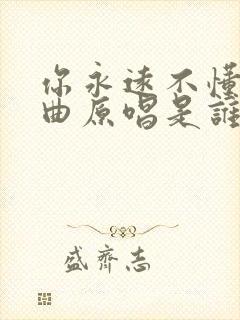 你永远不懂
曲原唱是誰
盛齊志